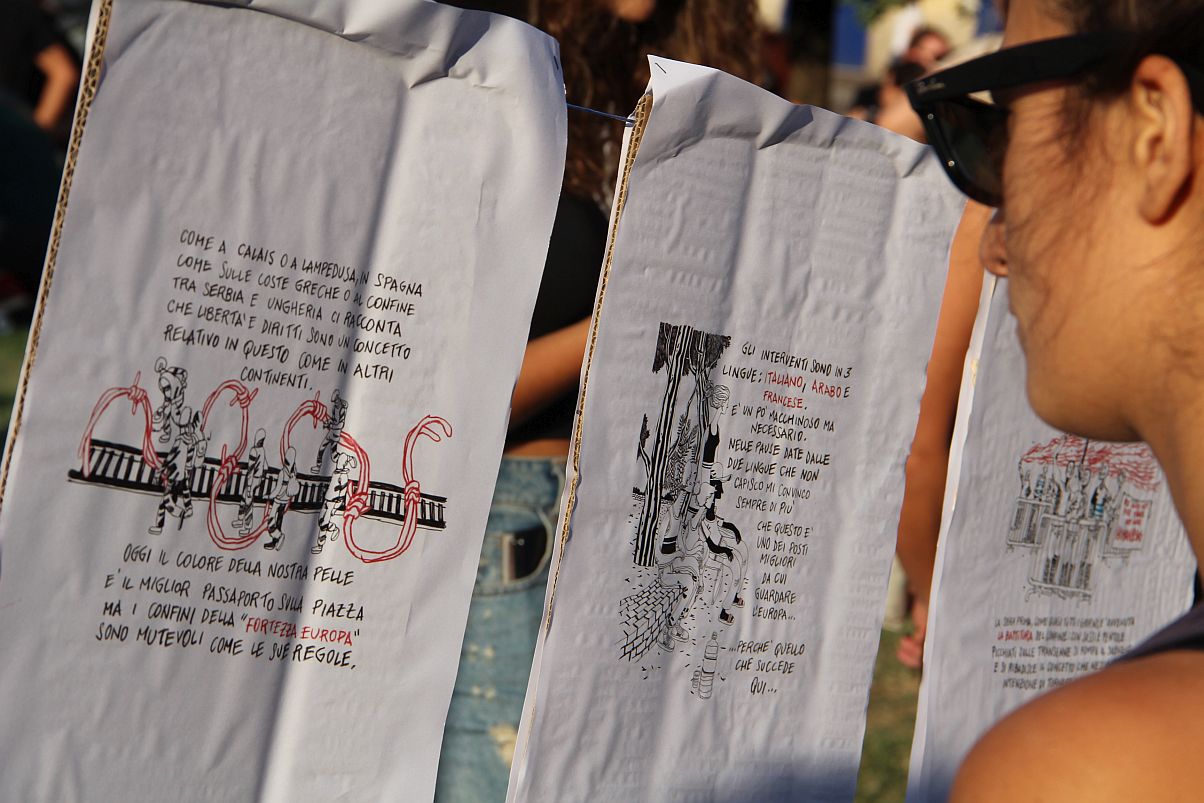 COME A CALAIS O A LAMPEDUSA, IN SPAGNA
COME SULLE COSTE GRECHE O AL CONFINE
TRA SERBIA E UNGHERIA CI RACCONTA
CHE LIBERTA' E DIRITTI SONO UN CONCETTO
RELATIVO IN QUESTO COME IN ALTRI
CONTINENTI.
OGGI IL COLORE DELLA NOSTRA PELLE
E' IL MIGLIOR PASSAPORTO SULLA PIAZZA
MA I CONFINI DELLA "FORTEZZA EUROPA"
SONO MUTEVOLI COME LE SUE REGOLE.
GLI INTERVENTI SONO IN 3
LINGUE: ITALIANO, ARABO E
FRANCESE.
E' UN PO' MACCHINOSO MA
NECESSARIO.
NELLE PAUSE DATE DALLE
DUE LINGUE CHE NON
CAPISCO MI CONVINCO
SEMPRE DI PIU'
CHE QUESTO E'
UNO DEI POSTI
MIGLIORI
DA CUI
GUARDARE
L'EUROPA...
...PERCHE' QUELLO
CHE SUCCEDE
QUI...
LA SERA PRIMA, COME
LA BATTITURA DEL CONFINE CON SASSI E PENTOLE
PICCHIATI SULLE TRANSENNE DI ROMPE IL
E SI RIBADISCE IL CONCETTO CHE
INTENZIONE DI